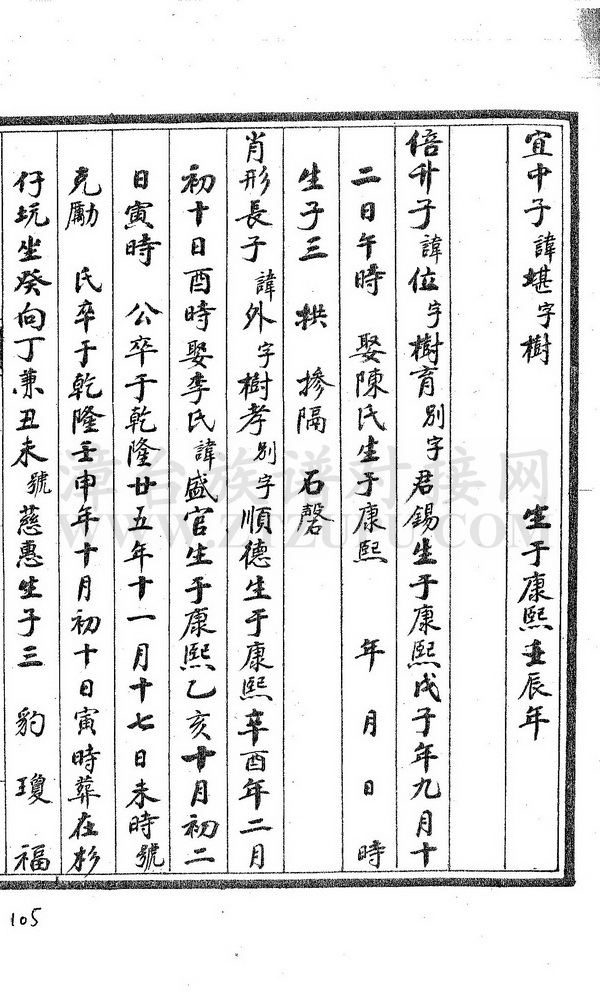 宜中子諱堪字樹 生于康熙壬辰年
倍升子諱位字樹育別字君錫生于康熙戊子年九月十
二日午時 娶陳氏生于康熙 年 月 日 時
生子三 拱 摻隔 石磬
肖形長子諱外字樹孝別字順德生于康熙辛酉年二月
初十日酉時娶李氏諱盛官生于康熙乙亥十月初二
日寅時 公卒于乾隆廿五年十一月十七日未時號
克勵 氏卒于乾隆壬申年十月初十日寅時葬在杉
仔坑坐癸向丁兼丑未號慈惠生子三 豹 瓊 福
105
漳台族谱对接网
WWW.ZTZUPU.COM